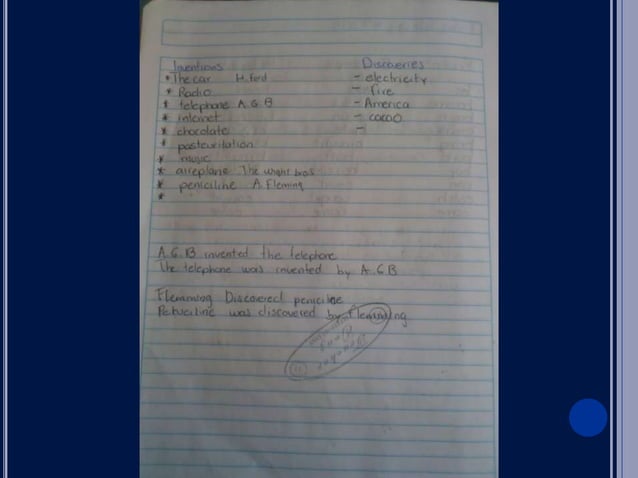 Inventions Discoveries
* The car H. ford - electricity
* Radio - fire
* telephone A.G.B - America
* internet - cacao
* chocolate -
* pasteuritation
* music
* aireplane The wright bros
* peniciline A. Fleming
*
A.G.B invented the telephone
The telephone was invented by A.G.B
Flemming Discovered peniciline
was discovered by Flemming